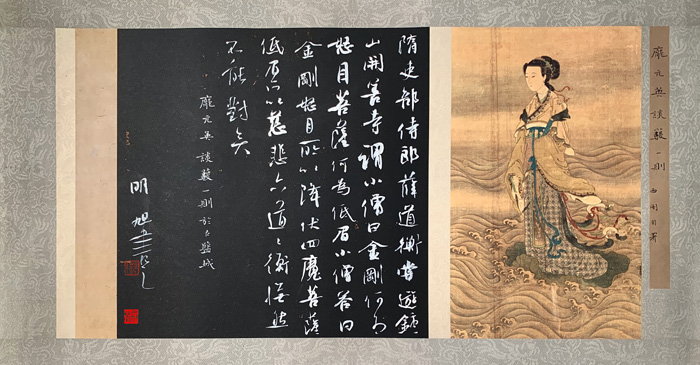 龐元英談藪一則
隋吏部侍郎薛道衡嘗遊鐘
山開善寺謂小僧曰金剛何為
怒目菩薩何為低眉小僧答曰
金剛怒目所以降伏四魔菩薩
低眉所以慈悲六道々衡憮然
不能對矣
龐元英談藪一則於古鹽城
明旭